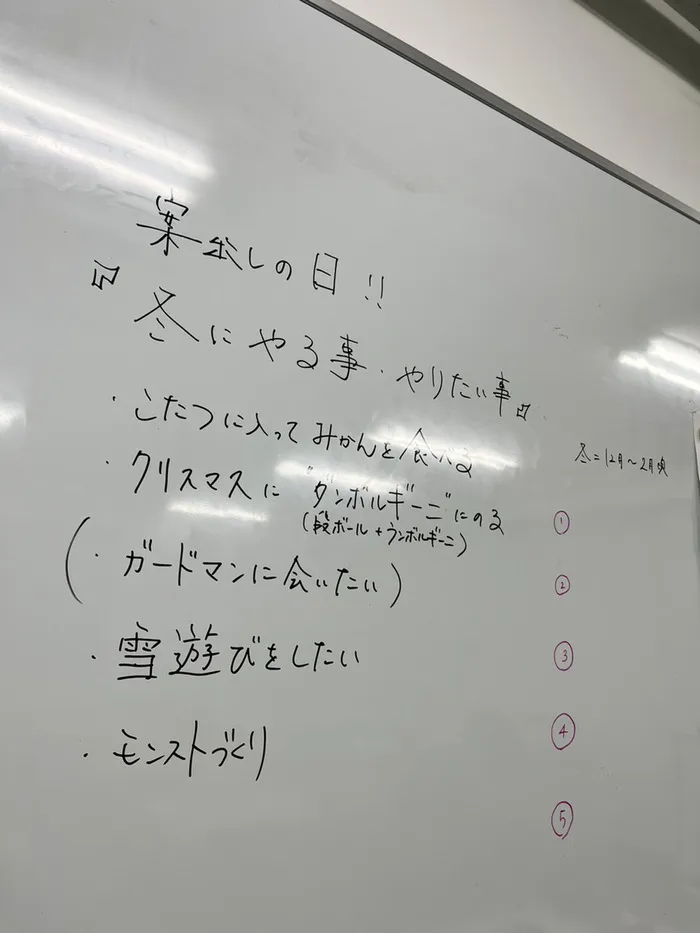 案出しの日!!
『冬にやる事・やりたい事』
・こたつに入ってみかんを食べる
冬=12月〜2月頃
・クリスマスに"ダンボルギーニ"にのる
(段ボール+ランボルギーニ)
(・ガードマンに会いたい)
・雪遊びをしたい
・モンストづくり
①
②
③
④
⑤